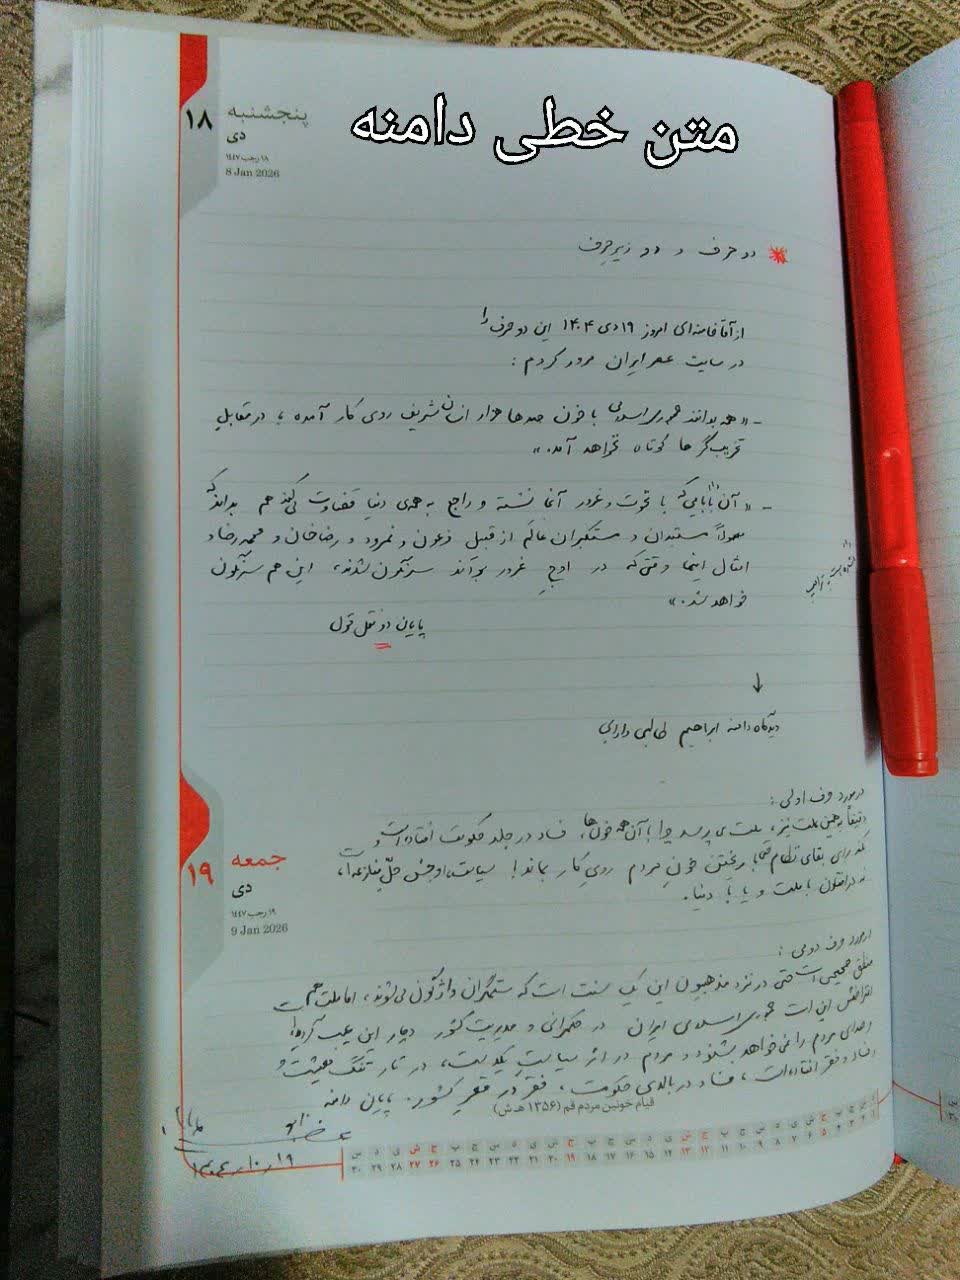 متن خطی دامنه
پنجشنبه
۱۸
دی
۱۸ رجب ۱۴۴۷
8 Jan 2026
دو حرف و دو زیرحرف
از آقا خامنه‌ای امروز ۱۹ دی ۱۴۰۴ این دو حرف را
در سایت عصر ایران مرور کردم :
- «همه بدانند جمهوری اسلامی با خون صدها هزار انسان شریف روی کار آمده ؛ در مقابلِ
تخریب‌گرها کوتاه نخواهد آمد.»
- «آن بابایی که با نخوت و غرور آنجا نشسته و راجع به همه‌ی دنیا قضاوت می‌کند هم بداند که
معمولاً مستبدان و مستکبران عالَم از قبیل فرعون و نمرود و رضاخان و محمدرضا و
امثال اینها وقتی که در اوجِ غرور بودند سرنگون شدند، این هم سرنگون
خواهد شد.»
پایان دو نقل قول
↓
دیدگاه دامنه ابراهیم طالبی دارابی
جمعه
۱۹
دی
۱۹ رجب ۱۴۴۷
9 Jan 2026
در مورد حرف اولی :
دقیقاً به همین علت نیز، ملت می‌پرسد چرا با آن همه خون‌ها، فساد در جلد حکومت افتاده است
برای بقای نظام با ریختن خونِ مردم روی کار بماند! سیاست، اوجش حلّ منازعه،
نه در افتادن با ملت و یا با دنیا.
در مورد حرف دومی :
منطق صحیحی است حتی در نزد مذهبیون این یک سنت است که ستمگران واژگون می‌شوند، اما ملت هم
اعتراضش این است جمهوری اسلامی ایران در حکمرانی و مدیریت کشور دچار این عیب گردیده!
صدای مردم را نمی‌خواهد بشنود و مردم در اثر سیاستِ یکدست، در تار تنگ معیشت و
فساد و فقر افتاده‌اند، فساد در بالای حکومت، فقر در قعر کشور. پایان دامنه
قیام خونین مردم قم (۱۳۵۶ ه‍.ش)
۱۹ ر ۱۰ ر ۱۴۰۴